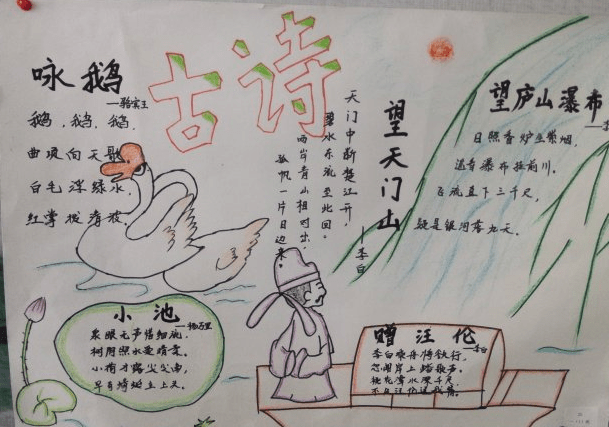 古诗
咏鹅
—骆宾王
鹅，鹅，鹅，
曲项向天歌
白毛浮绿水，
红掌拨清波。
天门中断楚江开，
碧水东流至此回。
两岸青山相对出，
孤帆一片日边来。
望天门山
—李白
望庐山瀑布
日照香炉生紫烟，
遥看瀑布挂前川。
飞流直下三千尺，
疑是银河落九天。
小池
—杨万里
泉眼无声惜细流，
树阴照水爱晴柔。
小荷才露尖尖角，
早有蜻蜓立上头。
赠汪伦
—李白
李白乘舟将欲行，
忽闻岸上踏歌声。
桃花潭水深千尺
不及汪伦送我情。